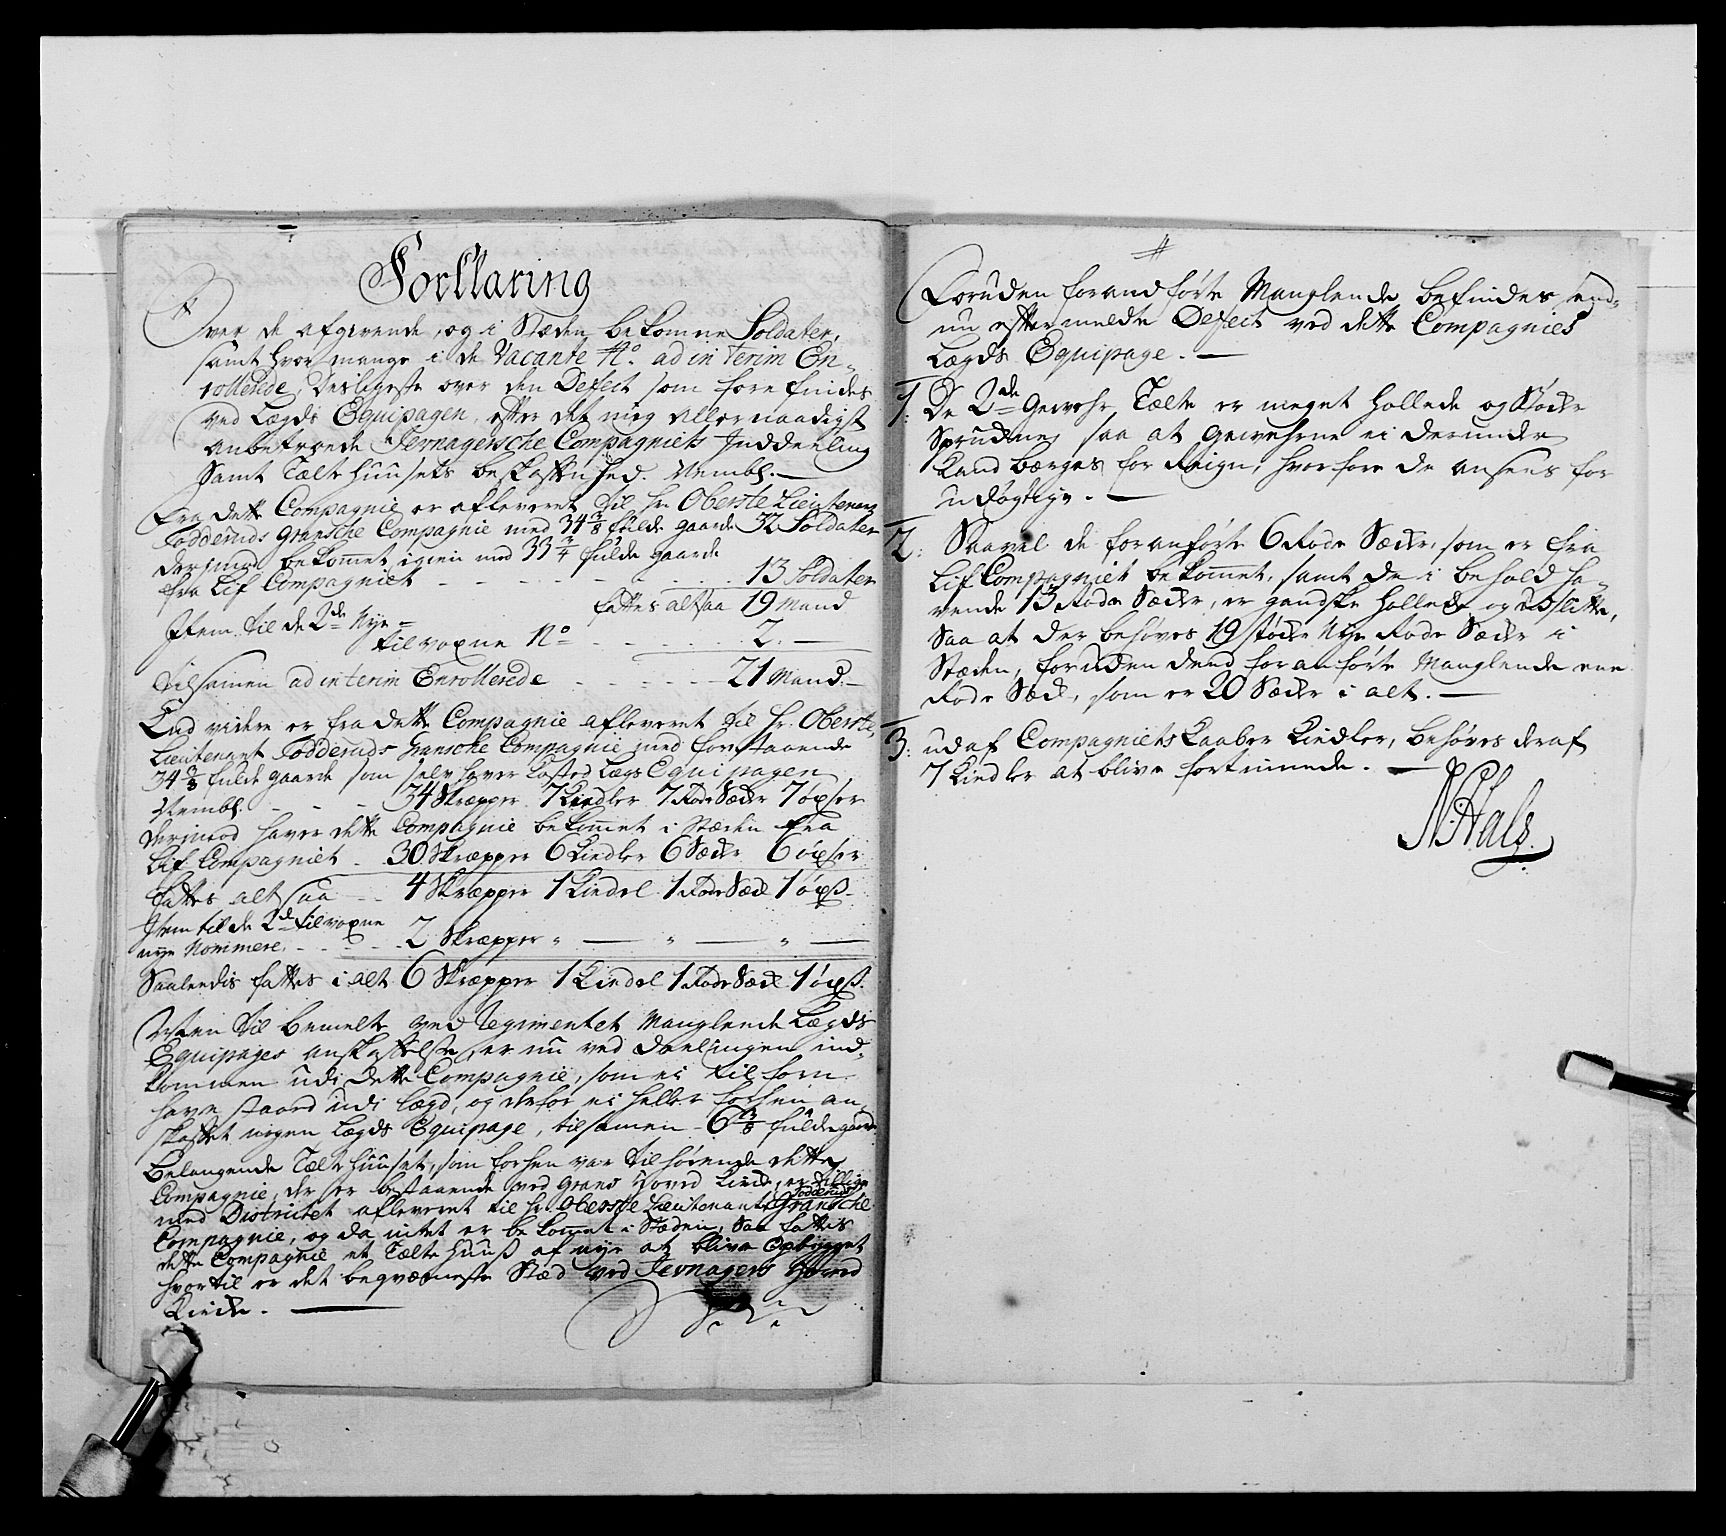 Forklaring
Over de afgivende, og i Stæden bekomne Soldater,
samt hvor mange i de Vacante No. ad interim En-
rollerede, Desligeste over den Defect som forefindes
ved Lægds Equipagen, efter det mig allernaadigst
anbetroede Jevnagersche Compagniets Inddeeling
Samt Telthuusets beskaffenhed. Nembl. —
Fra dette Compagnie er afleveret til Hr. Oberste Lieutenant
Todderuds Gransche Compagnie med 34 3/8 fulde gaarde 32 Soldater
Derimod bekommet igien med 33 3/4 fulde gaarde
fra Lif Compagniet - - - 13 Soldater
fattes altsaa 19 Mand
Item til de 2de Nye
tilvoxne No - - - 2. —
Tilsamen ad interim Enrollerede - - - 21 Mand. —
End videre er fra dette Compagnie afleveret til Hr. Oberste
Lieutenant Todderuds Gransche Compagnie med forestaaende
34 3/8 fulde gaarde som selv haver kosted Lægs Equipagen
Nembl. - - - 34 Skræpper 7 Kiedler 7 Rode Sække 7 öxser
Derimod haver dette Compagnie bekommet i Stæden fra
Lif Compagniet - 30 Skræpper 6 Kiedler 6 Sække 6 öxser
fattes altsaa - - 4 Skræpper 1 Kiedel 1 Rode Sæck 1 öxs
Item til de 2de tilvoxne
nye Nommere. - - - 2 Skræpper „ — „ — „ —
Saaledis fattes i alt 6 Skræpper 1 Kiedel 1 Rode Sæck 1 öxs.
til bemelte ved Regimentet Manglende Lægds
Equipages anskaffelse, er nu ved deelingen ind-
kommen udi dette Compagnie, som ei tilforn
have staaed udi lægd, og derfor ei heller forhen an-
skaffet nogen Lægds Equipage, tilsamen - 6 fulde gaarde
Belangende Telthuuset, som forhen var tilhørende dette
Compagnie, der er bestaaende ved Grans Hoved Kirke, er tillige
med Districtet afleveret til Hr. Oberste Lieutenant Todderuds Gransche
Compagnie, og da intet er bekommet i Stæden, saa fattes
dette Compagnie et Telthuus af nye at blive Opbygget
hvortil er det beqvæmeste Stæd ved Jevnagers Hoved
Kirke. —
#
Foruden forandførte Manglende, befindes end-
nu eftermeldte Defect ved dette Compagnies
Lægds Equipage. —
1: De 2de Gewehr Tælte er meget hollede og
saa at Gewehrne ei derunder
kand bærges for Reign, hvorfore de ansees for
udögtige. —
2: Saavel de foranførte 6 Rode Sække, som er fra
Lif Compagniet bekommet, samt de i behold ha-
vende 13 Rode Sække, er gandske hollede og obslitte,
saa at der behøves 19 støcke Nye Rode Sække i
Stæden, foruden dend foranførte Manglende ene
Rode Sæck, som er 20 Sække i alt. —
3: udaf Compagniets Kaaber Kiedler, behøves deraf
7 Kiedler at blive fortinnede. —
N Hals.